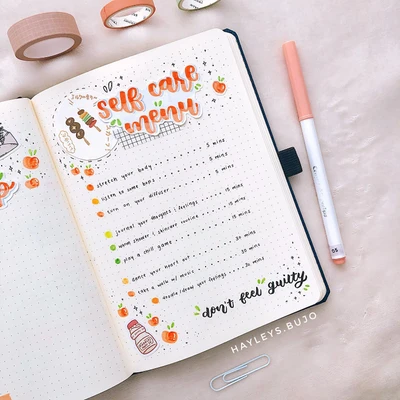 self care
menu
stretch your body 5 mins
listen to some bops 5 mins
turn on your diffuser 5 mins
journal your thoughts / feelings 15 mins
warm shower / skincare routine 15 mins
play a chill game 15 mins
dance your heart out 30 mins
take a walk w/ music 30 mins
doodle/draw your feelings 30 mins
don't feel guilty
HAYLEYS.BUJO